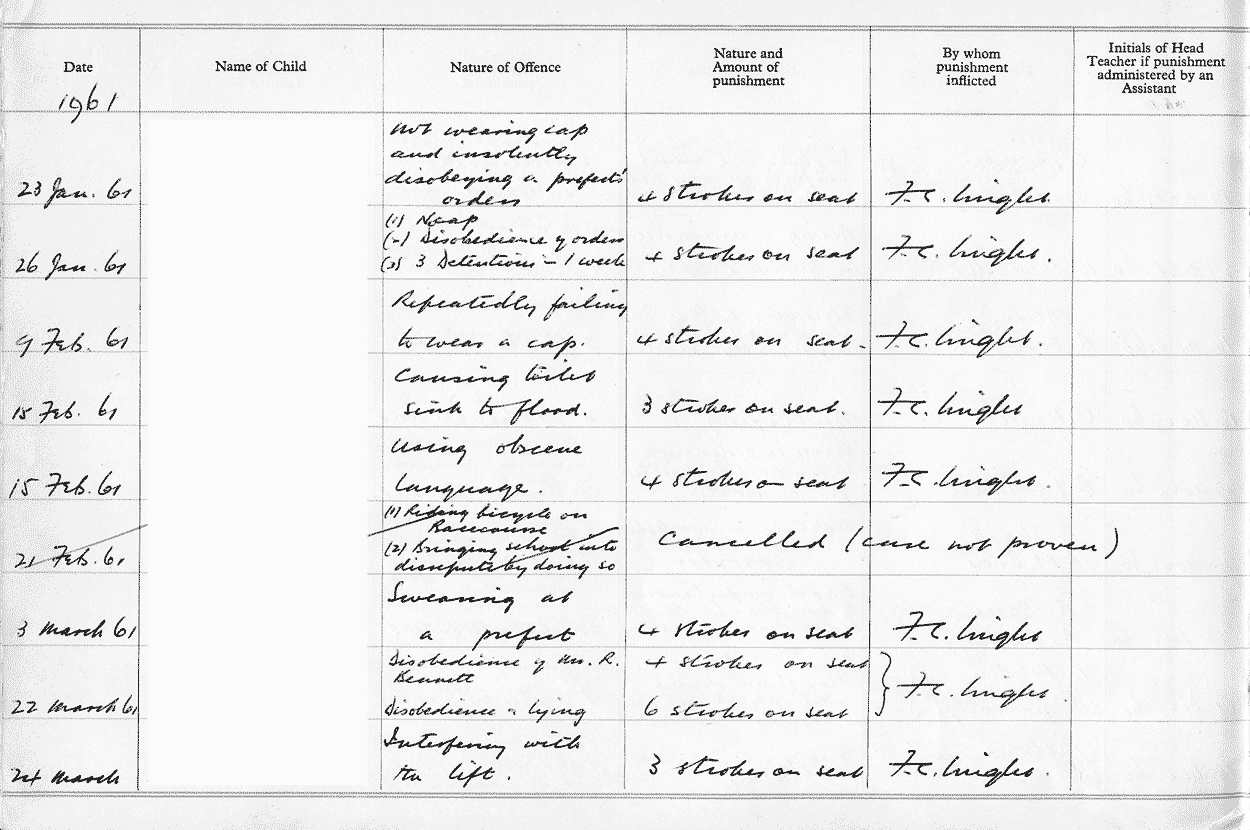 Date
Name of Child
Nature of Offence
Nature and
Amount of
punishment
By whom
punishment
inflicted
Initials of Head
Teacher if punishment
administered by an
Assistant
1961
not wearing cap
and insolently
disobeying a prefect's
23 Jan. 61 orders 4 strokes on seat F.C.
(1) No cap
(2) Disobedience of orders
26 Jan. 61 (3) 3 Detentions – 1 week 4 strokes on seat F.C.
Repeatedly failing
9 Feb. 61 to wear a cap. 4 strokes on seat. F.C.
Causing toilet
15 Feb. 61 sink to flood. 3 strokes on seat. F.C.
Using obscene
15 Feb. 61 language. 4 strokes on seat F.C.
(1) Riding bicycle on
Racecourse
21 Feb. 61 (2) Bringing school into Cancelled (case not proven)
disrepute by doing so
Swearing at
3 March 61 a prefect 4 strokes on seat F.C.
Disobedience of Mr. R. 4 strokes on seat
Bennett
22 March 61 Disobedience & lying 6 strokes on seat F.C.
Interfering with
24 March the lift. 3 strokes on seat F.C.